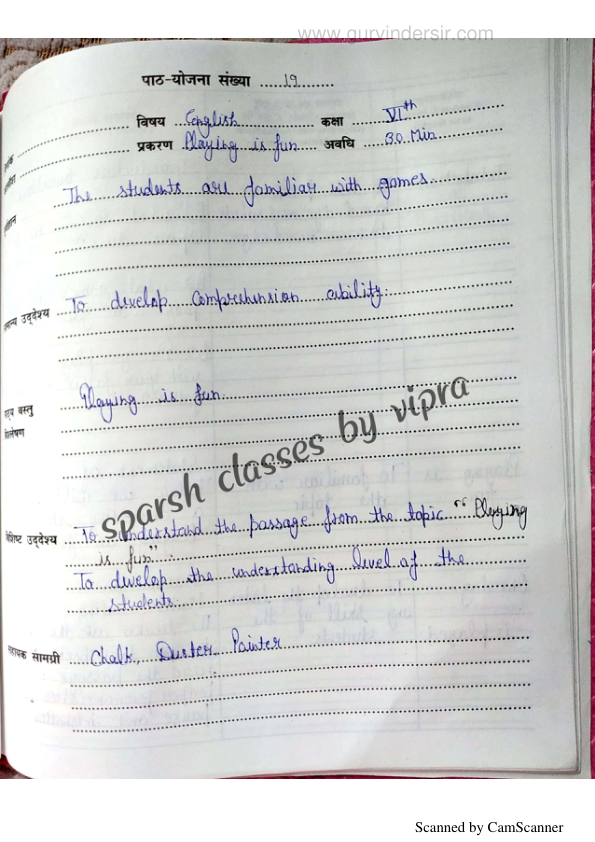 www.gurvindersir.com
पाठ-योजना संख्या ......19........
विषय English कक्षा VIth
प्रकरण Playing is fun अवधि 30 Min
The students are familiar with games.
उद्देश्य To develop comprehension ability.
वस्तु Playing is fun
sparsh classes by vipra
उद्देश्य To understand the passage from the topic "Playing
is fun".
To develop the understanding level of the
students.
सामग्री Chalk, Duster, Pointer
Scanned by CamScanner